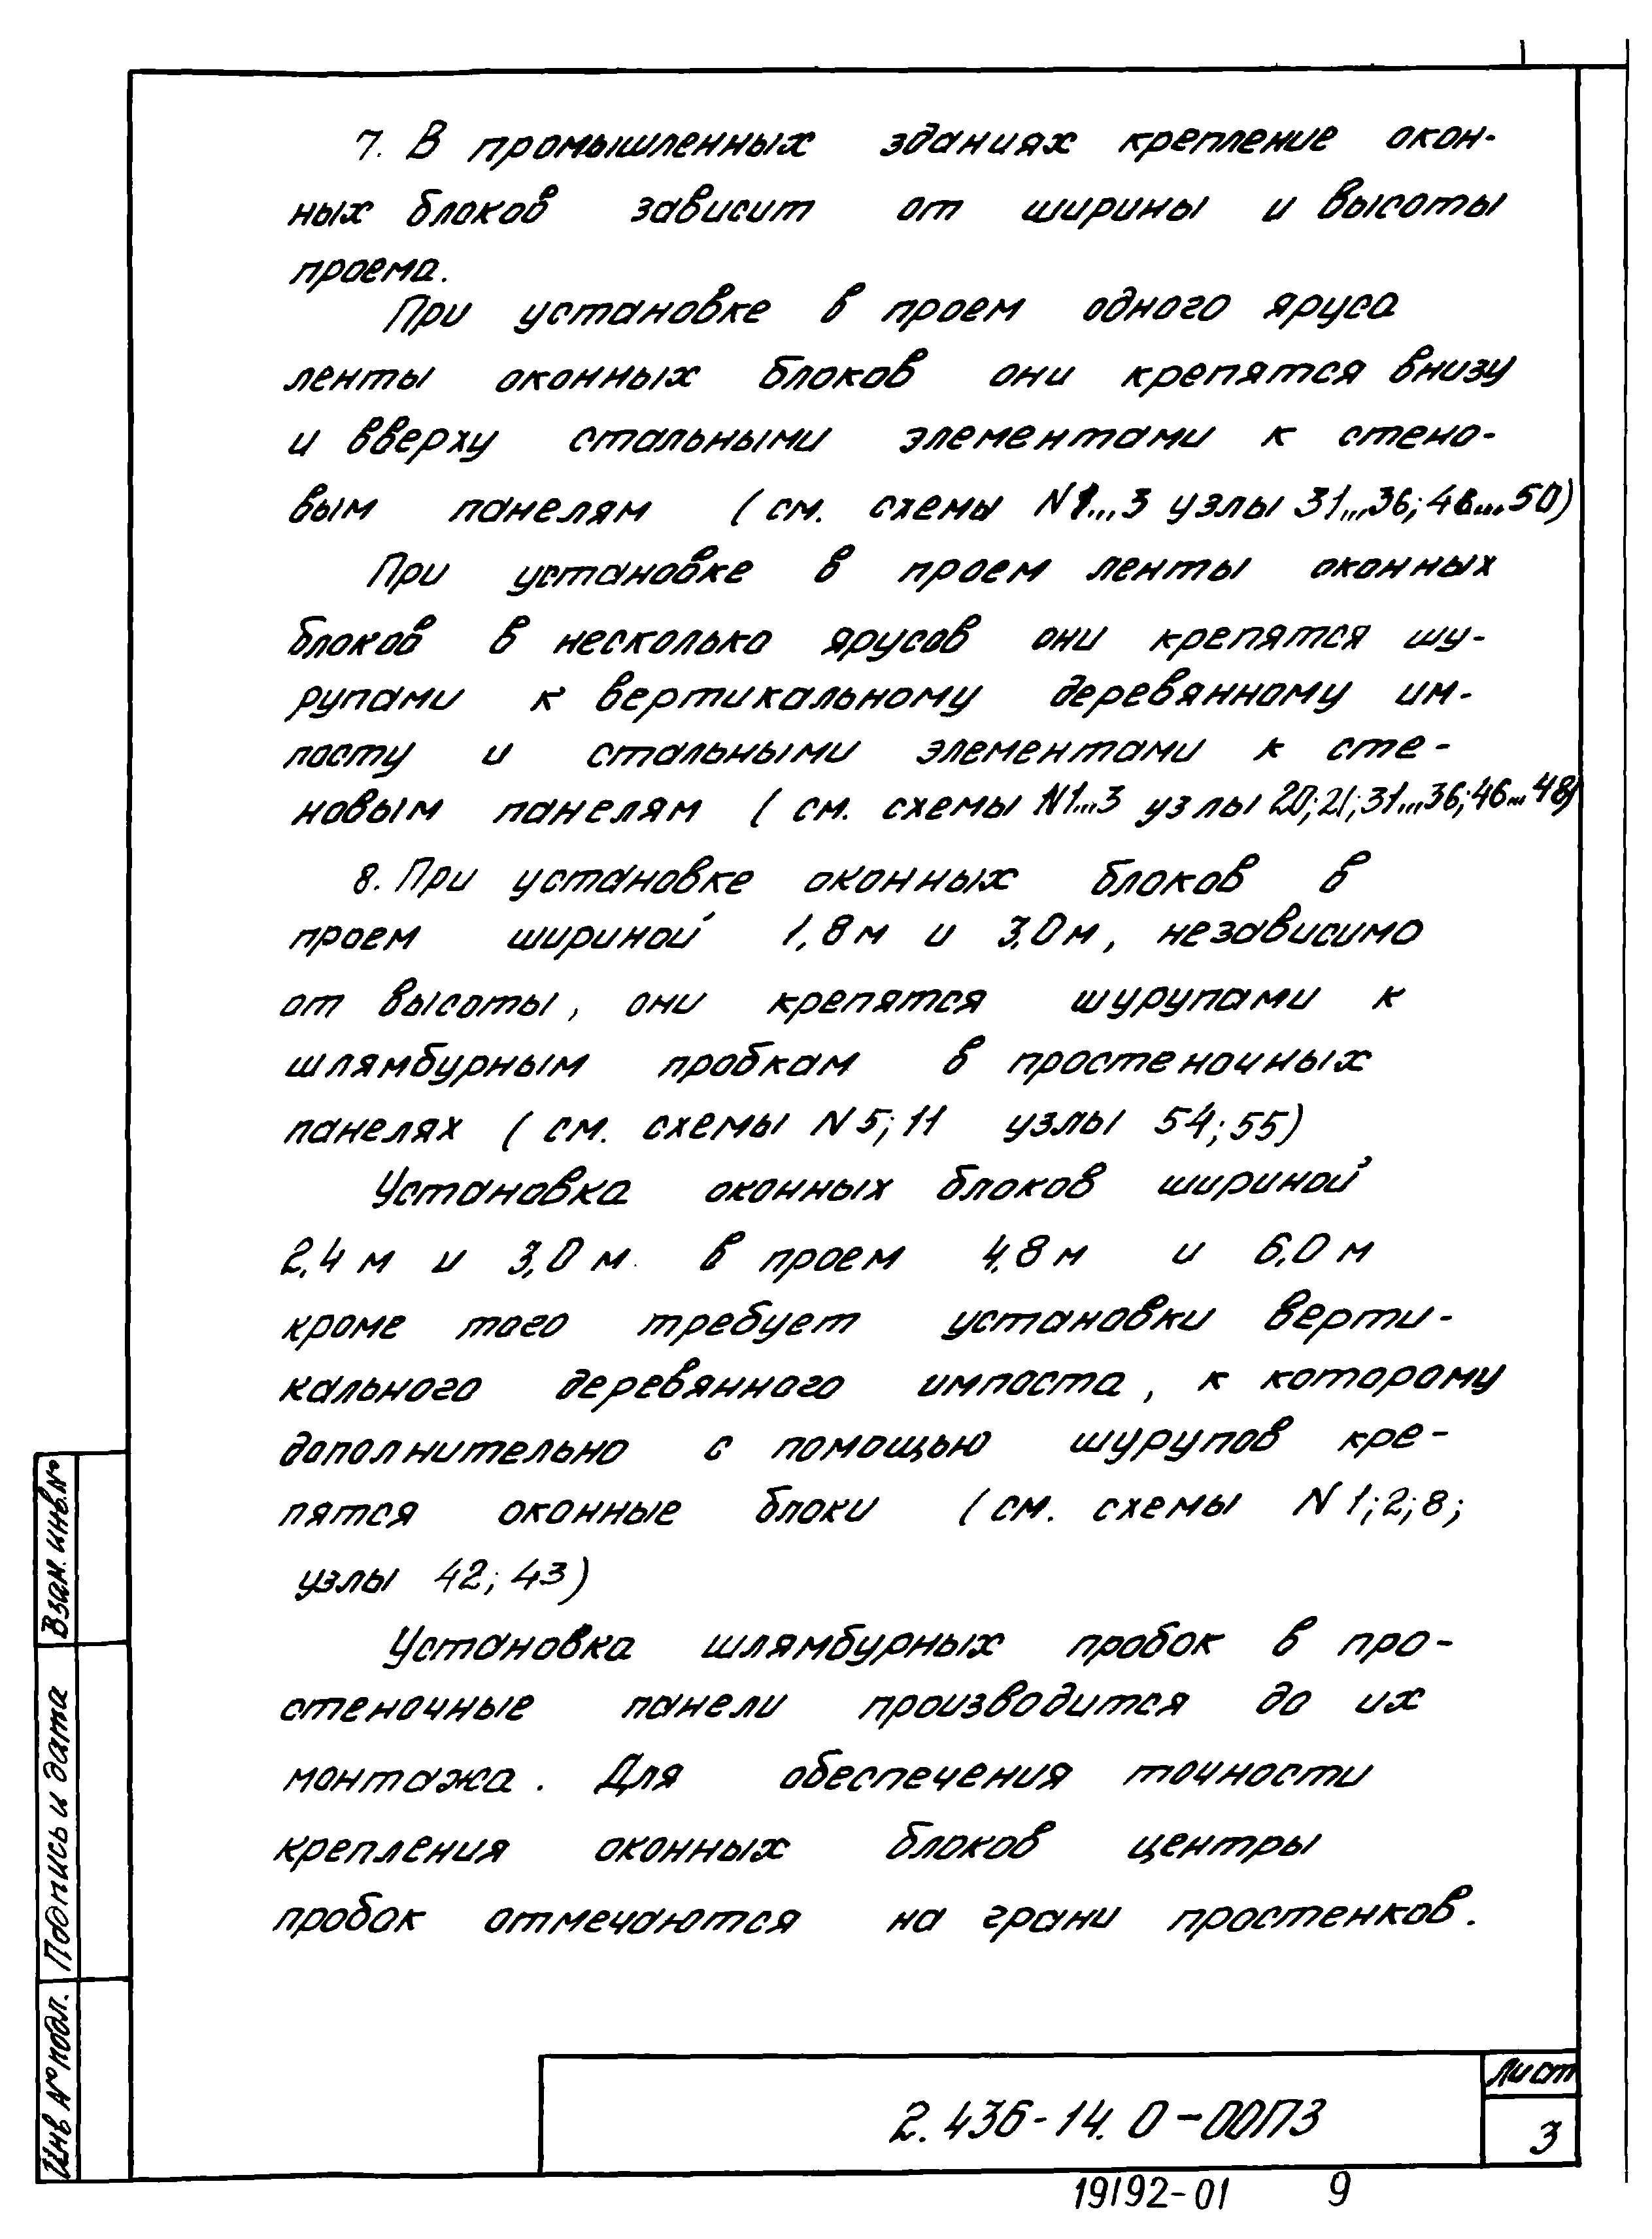 7. В промышленных зданиях крепление окон-
ных блоков зависит от ширины и высоты
проема.
При установке в проем одного яруса
ленты оконных блоков они крепятся внизу
и вверху стальными элементами к стено-
вым панелям (см. схемы N1...3 узлы 31...36; 46...50)
При установке в проем ленты оконных
блоков в несколько ярусов они крепятся шу-
рупами к вертикальному деревянному им-
посту и стальными элементами к сте-
новым панелям (см. схемы N1...3 узлы 20;21;31...36;46...48)
8. При установке оконных блоков в
проем шириной 1,8м и 3,0м, независимо
от высоты, они крепятся шурупами к
шлямбурным пробкам в простеночных
панелях (см. схемы N5; 11 узлы 54; 55)
Установка оконных блоков шириной
2,4м и 3,0м. в проем 4,8м и 6,0м
кроме того требует установки верти-
кального деревянного импоста, к которому
дополнительно с помощью шурупов кре-
пятся оконные блоки (см. схемы N 1; 2; 8;
узлы 42; 43)
Установка шлямбурных пробок в про-
стеночные панели производится до их
монтажа. Для обеспечения точности
крепления оконных блоков центры
пробок отмечаются на грани простенков.
Взам. инв.№
Подпись и дата
Инв № подл.
2.436-14.0-00ПЗ
Лист
3
19192-01 9